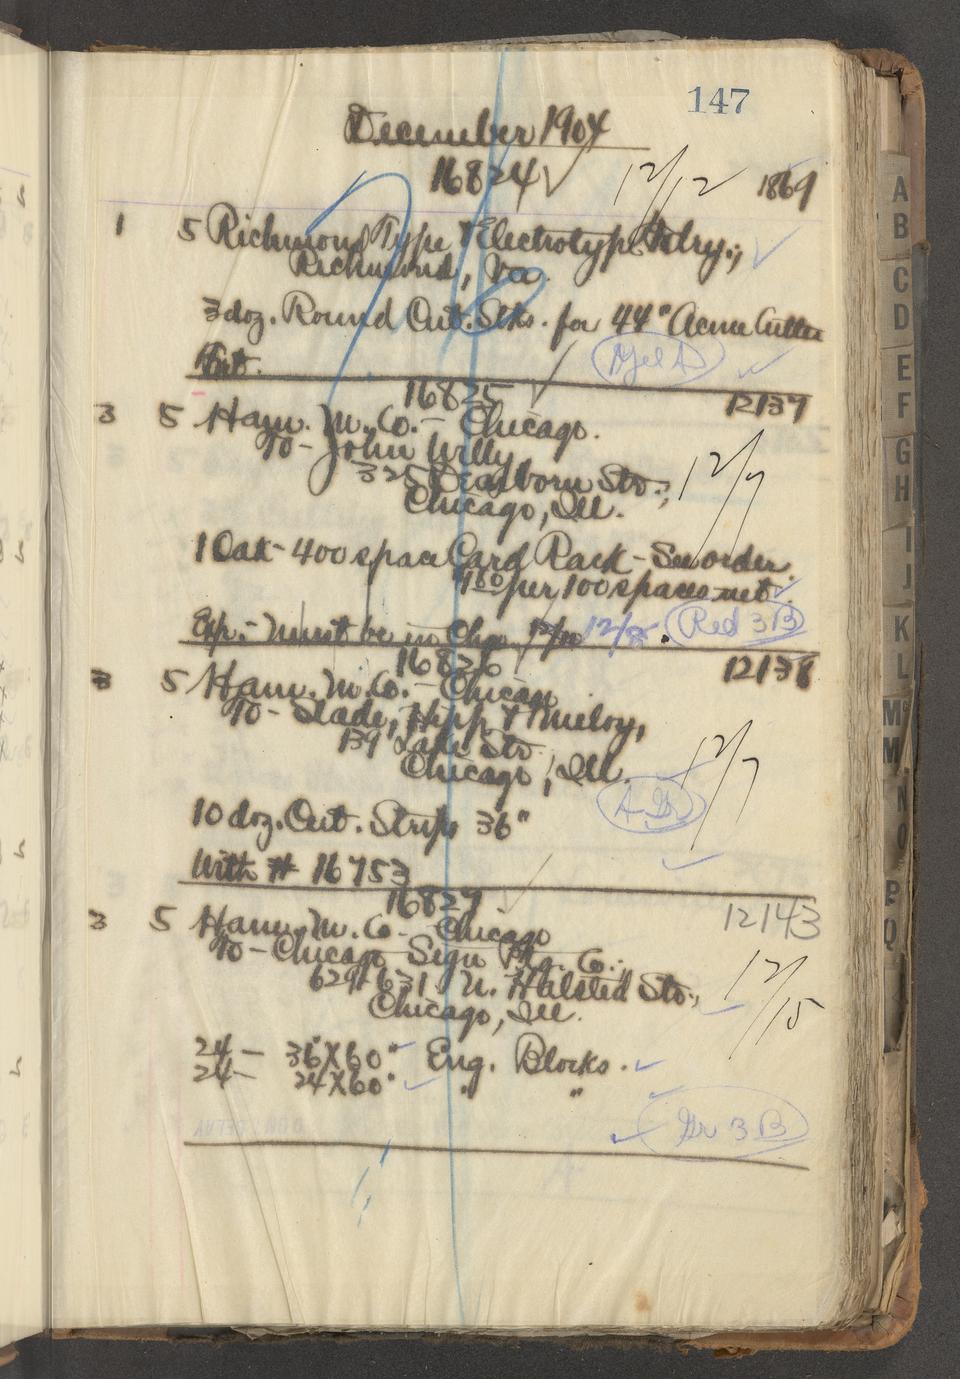 147
December 1904
16824 12/12 1869
1 5 Richmond Type & Electrotype Fdry.,
Richmond, Va.
3 doz. Round Cut. Stks. for 44" Acme Cutter
Frt.
16825 12137
3 5 Ham. M. Co. - Chicago.
To - John Willy
325 Dearborn Str.,
Chicago, Ill. 12/7
1 Oak - 400 space Card Rack - See order
per 100 spaces net.
Exp. - Must be in Chgo. 12/10 12/8 Red 3 B
16826 12138
3 5 Ham. M. Co. - Chicago
To - Slade, Hipp & Meloy,
139 Lake Str.
Chicago, Ill. 12/7
10 doz. Cut. Strips 36"
With # 16753
16827 12143
3 5 Ham. M. Co. - Chicago
To - Chicago Sign Ptg. Co.,
629 & 631 N. Halsted Str.,
Chicago, Ill. 12/15
24 - 36 X 60" Eng. Blocks.
24 - 24 X 60" " "
Gr 3 B
A
B
C
D
E
F
G
H
I
J
K
L
Mc
M
N
O
P
Q